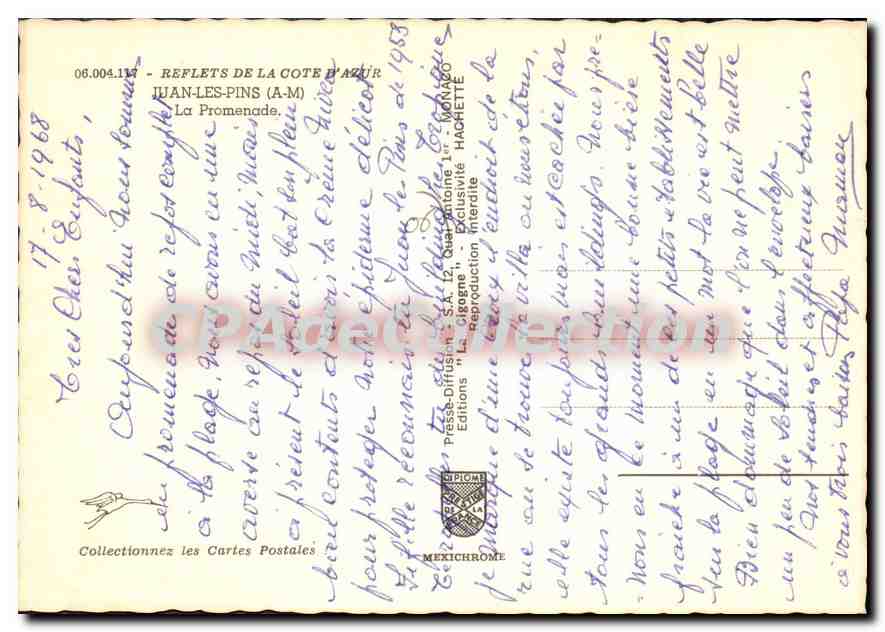 06.004.117 - REFLETS DE LA COTE D'AZUR
JUAN-LES-PINS (A-M)
La Promenade.
17-8-1968
Tres Chers Enfants,
Aujourd'hui nous sommes
en promenade de repos complet
à la plage, nous avons eu une
averse au repas du midi, mais
a présent le soleil bat son plein
bien contents d'avoir la Creme Nivea
pour protéger notre épiderme délicat
La fille reconnais tu Juan les Pins de 1953
te rappelles tu de la
je marque d'une croix l'endroit de la
rue ou se trouve la villa ou nous étions,
elle existe toujours mais est cachée par
tous les grands buildings. Nous pre-
-nons en ce moment une bonne bière
fraiche à un de ces petits établissements
sur la plage en un mot la vie est belle
Bien dommage que l'on ne peut mettre
un peu de soleil dans l'envelope.
Nos tendres et affectueux baisers
à vous trois baisers Papa Maman
Presse-Diffusion - S.A. 12, Quai Antoine 1er - MONACO
Editions "La Cigogne" - Exclusivité HACHETTE
Reproduction Interdite
06
CPAdeCollection.com
Collectionnez les Cartes Postales
DIPLOME
DE LA
MEXICHROME